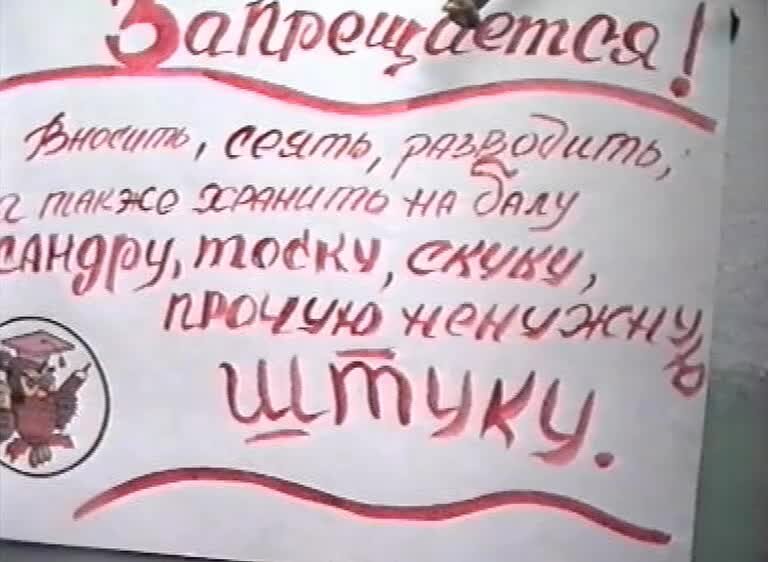 Запрещается!
Вносить, сеять, разводить,
а также хранить на балу
сандру, тоску, скуку,
прочую ненужную
штуку.